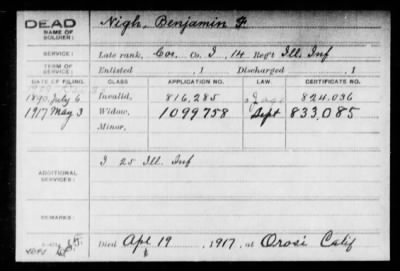 DEAD
NAME OF SOLDIER:
Nigh, Benjamin F.
SERVICE:
Late rank, Cor. Co. I, 14 Reg't Ill. Inf
TERM OF SERVICE:
Enlisted , 1 Discharged , 1
DATE OF FILING. CLASS. APPLICATION NO. LAW. CERTIFICATE NO.
1890 July 6 Invalid, 816,285 824,036
1917 May 3 Widow, 1099758 Sept 833,085
Minor,
ADDITIONAL SERVICES:
I 25 Ill. Inf
REMARKS:
Died Apl 19 , 1917, at Orosi Calif